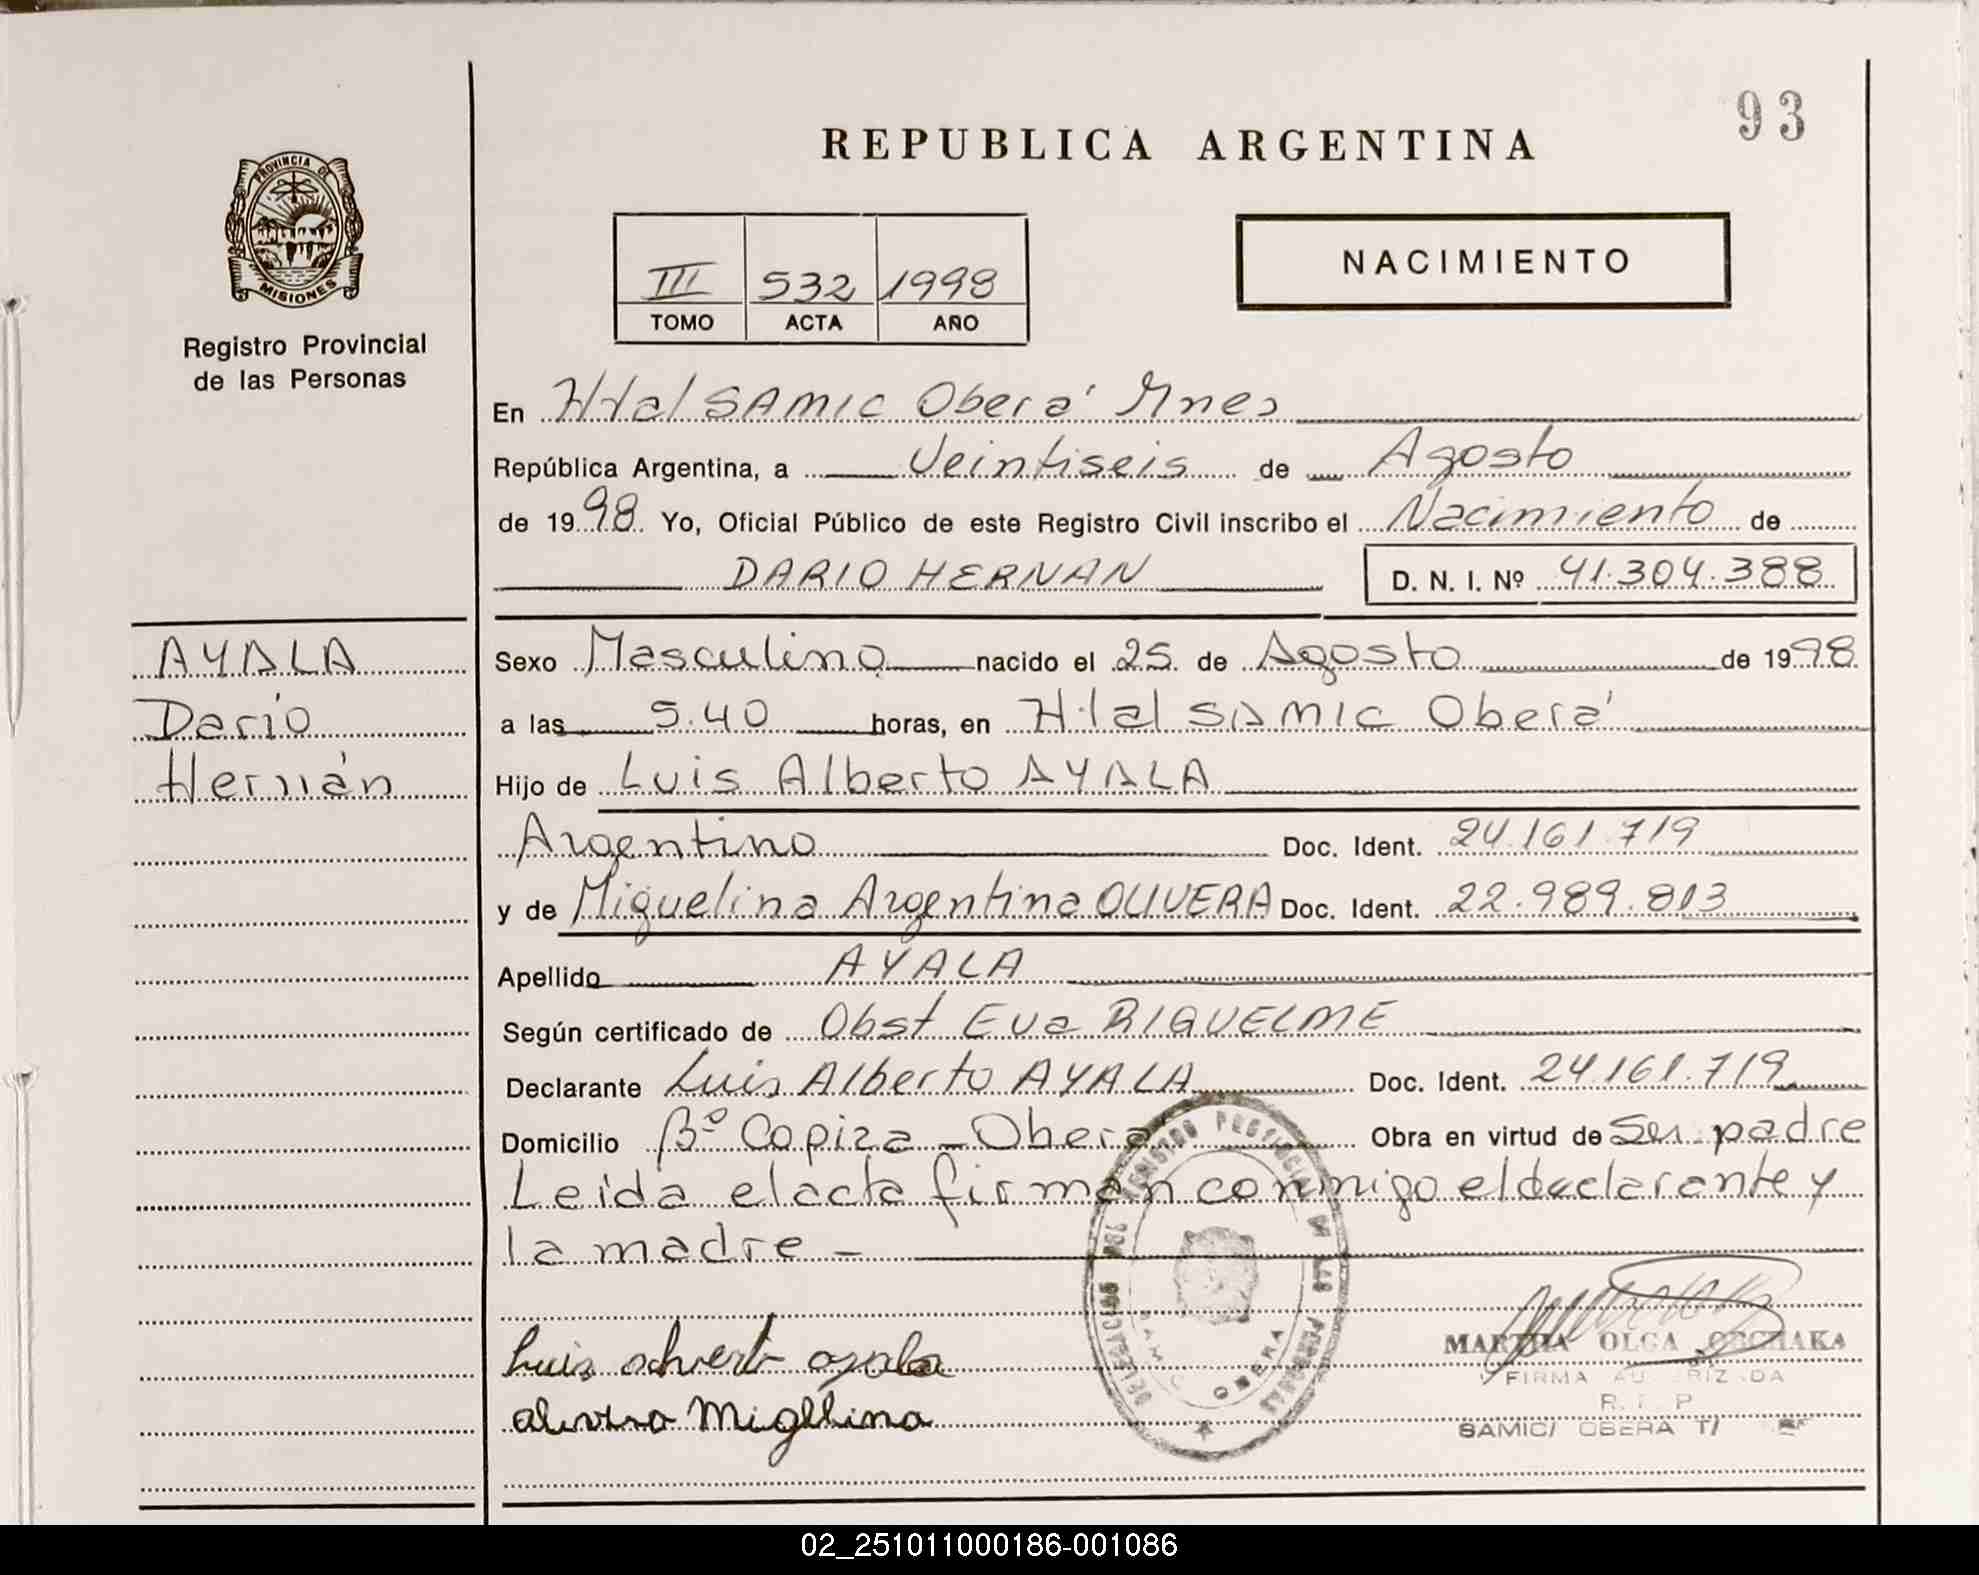 93
REPUBLICA ARGENTINA
PROVINCIA DE
MISIONES
Registro Provincial
de las Personas
III 532 1998
TOMO ACTA AÑO
NACIMIENTO
En H+al SAMIC Oberá Mnes
República Argentina, a Veintiseis de Agosto
de 1998 Yo, Oficial Público de este Registro Civil inscribo el Nacimiento de
DARIO HERNAN D. N. I. Nº 41.304.388
AYALA
Darío
Hernán
Sexo Masculino nacido el 25 de Agosto de 1998
a las 5.40 horas, en H+al SAMIC Oberá
Hijo de Luis Alberto AYALA
Argentino Doc. Ident. 24.161.719
y de Miguelina Argentina OLIVERA Doc. Ident. 22.989.813
Apellido AYALA
Según certificado de Obst Eva RIQUELME
Declarante Luis Alberto AYALA Doc. Ident. 24.161.719
Domicilio Bº Copiza - Oberá Obra en virtud de Ser padre
Leida el acta firman conmigo el declarante y
la madre -
REGISTRO PROVINCIAL DE LAS PERSONAS
DELEGACION
SAMIC OBERA
MARTHA OLGA
FIRMA AUTORIZADA
R. P. P
SAMIC/ OBERA T/
02_251011000186-001086